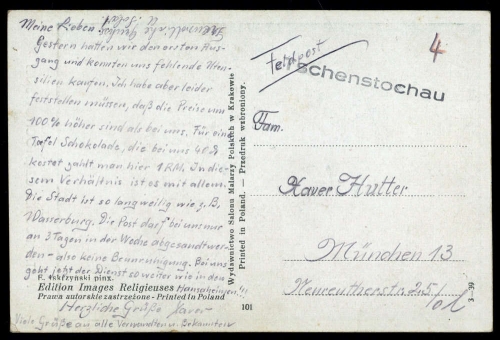 Meine Lieben
Gestern hatten wir den ersten Aus-
gang und konnten uns fehlende Uten-
silien kaufen. Ich habe aber leider
feststellen müssen, daß die Preise um
100% höher sind als bei uns. Für eine
Tafel Schokolade, die bei uns 40 ₰
kostet zahlt man hier 1 RM. In die-
sem Verhältnis ist es mit allem.
Die Stadt ist so langweilig wie z. B.
Wasserburg. Die Post darf bei uns nur
an 3 Tagen in der Woche abgesandt wer-
den - also keine Beunruhigung. Bei uns
geht jetzt der Dienst so weiter wie in den
Herzliche Grüße Xaver
Viele Grüße an alle Verwandten u. Bekannten
pinx.
Edition Images Religieuses
Prawa autorskie zastrzeżone - Printed in Poland
101
Wydawnictwo Salonu Malarzy Polskich w Krakowie
Printed in Poland. — Przedruk wzbroniony.
Feldpost
schenstochau
4
Fam.
Xaver Hutter
München 13
Neureutherstr. 25/
3—39